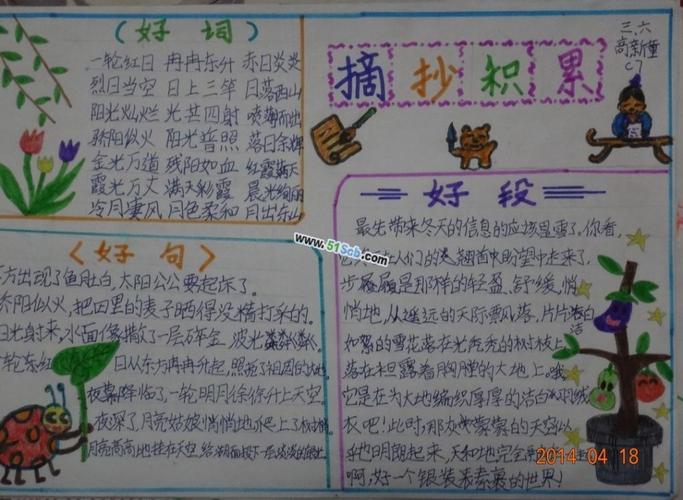 （好 词）
一轮红日 冉冉东升 赤日炎炎
烈日当空 日上三竿 日落西山
阳光灿烂 光芒四射 喷薄而出
骄阳似火 阳光普照 落日余辉
金光万道 残阳如血 红霞满天
霞光万丈 满天彩霞 晨光绚丽
冷月寒风 月色柔和 月出东山
摘 抄 积 累
三.六
C7
〈好 句〉
方出现了鱼肚白，太阳公公要起床了。
骄阳似火，把四里的麦子晒得没精打采的。
日光射来，水面像撒了一层碎金，波光粼粼
日从东方冉冉升起，照振了祖国的大地
夜幕降临了一轮明月徐徐升上天空
夜深了，月亮姑娘悄悄地爬上了树梢
月亮高高地挂在天空，给湖面披下一层淡淡的银
好 段
最先带来冬天的信息的应该是雪了，你看，
在人们的翘首中盼望中走来了，
步履是那样的轻盈、舒缓，悄
悄地，从遥远的天际飘落，片片洁白
如絮的雪花落在光秃秃的树枝上
落在袒露着胸膛的大地上，哦，
它是在为大地编织厚厚的洁白羽绒
衣吧！此时，那灰蒙蒙的天空似
乎也明朗起来，天和地完全
啊，好一个银装素裹的世界！
www.51Scb.com
2014 04 18